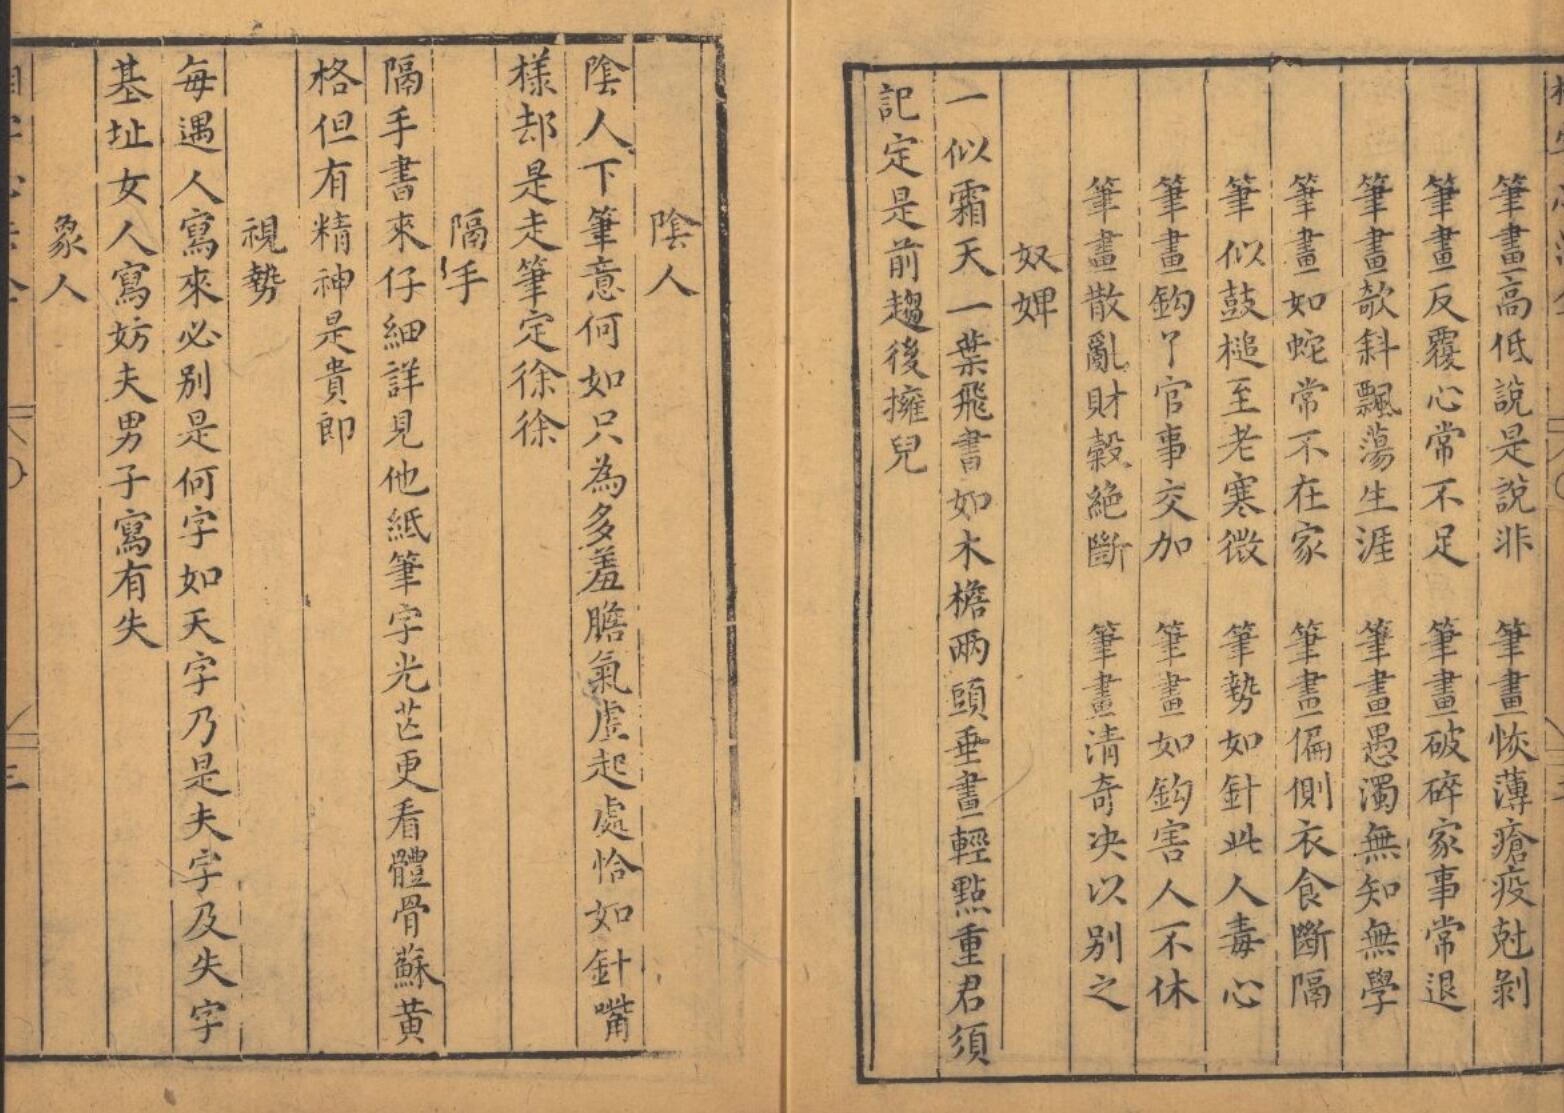 筆畫高低說是說非　筆畫恢薄瘡疫尅剝
筆畫反覆心常不足　筆畫破碎家事常退
筆畫欹斜飄蕩生涯　筆畫愚濁無知無學
筆畫如蛇常不在家　筆畫偏側衣食斷隔
筆似鼓槌至老寒微　筆勢如針此人毒心
筆畫鈎丫官事交加　筆畫如鈎害人不休
筆畫散亂財穀絕斷　筆畫清奇决以別之
奴婢
一似霜天一葉飛書如木檐兩頭垂畫輕點重君須
記定是前趨後擁兒
陰人
陰人下筆意何如只為多羞膽氣虛起處恰如針嘴
様却是走筆定徐徐
隔手
隔手書來仔細詳見他紙筆字光芒更看體骨蘇黃
格但有精神是貴郎
視勢
每遇人寫來必別是何字如天字乃是夫字及失字
基址女人寫妨夫男子寫有失
象人
三